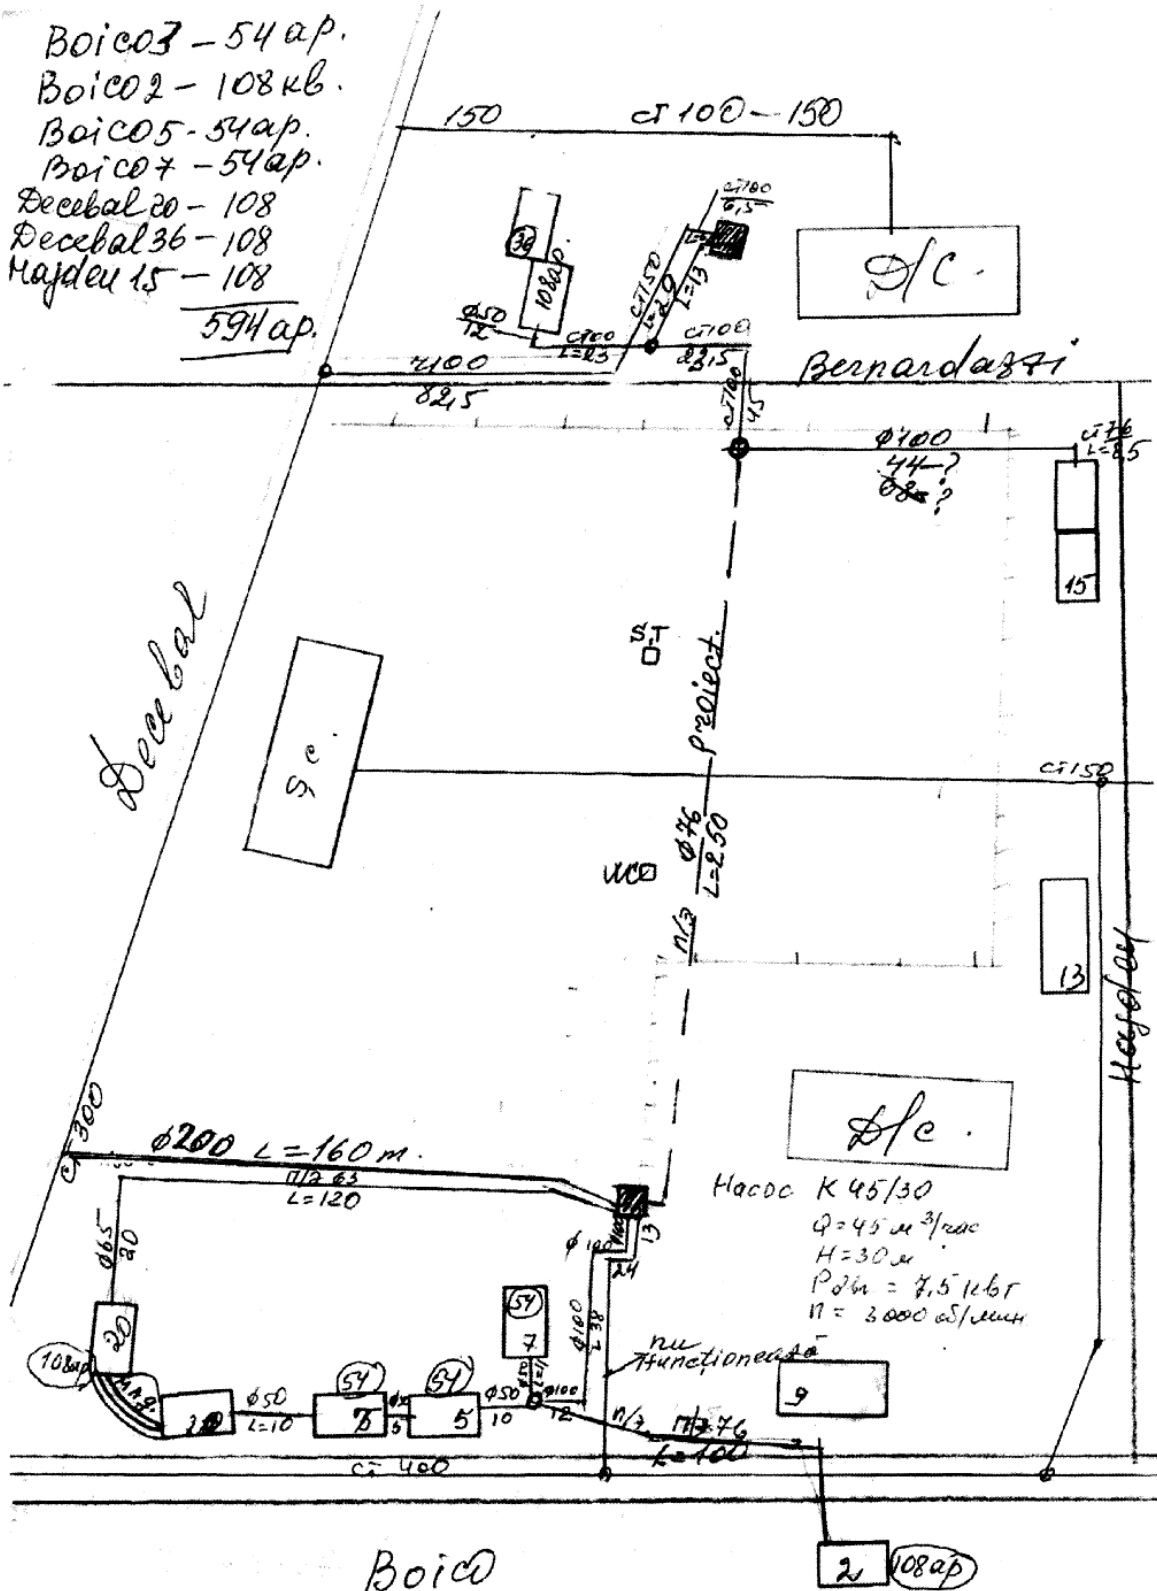 Boico 3 – 54 ap.
Boico 2 – 108 кв.
Boico 5 - 54 ap.
Boico 7 – 54 ap.
Decebal 20 – 108
Decebal 36 – 108
Hajdeu 15 – 108
594 ap.
150
ст 100 – 150
ст100
6,5
36
108ap.
ст150
L=29
L=13
Д/С.
ф50
12
ст100
L=23
ст100
23,5
ч100
82,5
Bernardazzi
ст100
45
ф100
44-?
ст76
L=8,5
15
Decebal
S.T
proiect.
Ф76
L=250
п/э
ст150
13
Hajdeu
ст300
ф200 L=160 m.
п/э 63
L=120
Д/с.
Насос К 45/30
Q=45 м³/час
H=30 м
Рдв = 7,5 квт
n = 3000 об/мин
ф65
20
ф100
13
24
20
108ap
маг.
54
7
ф100
L 38
nu
funcționează
9
ф50
L=10
54
54
5
5
ф50
10
ф100
12
п/э
п/э 76
L=100
ст 400
Boico
2
108ap